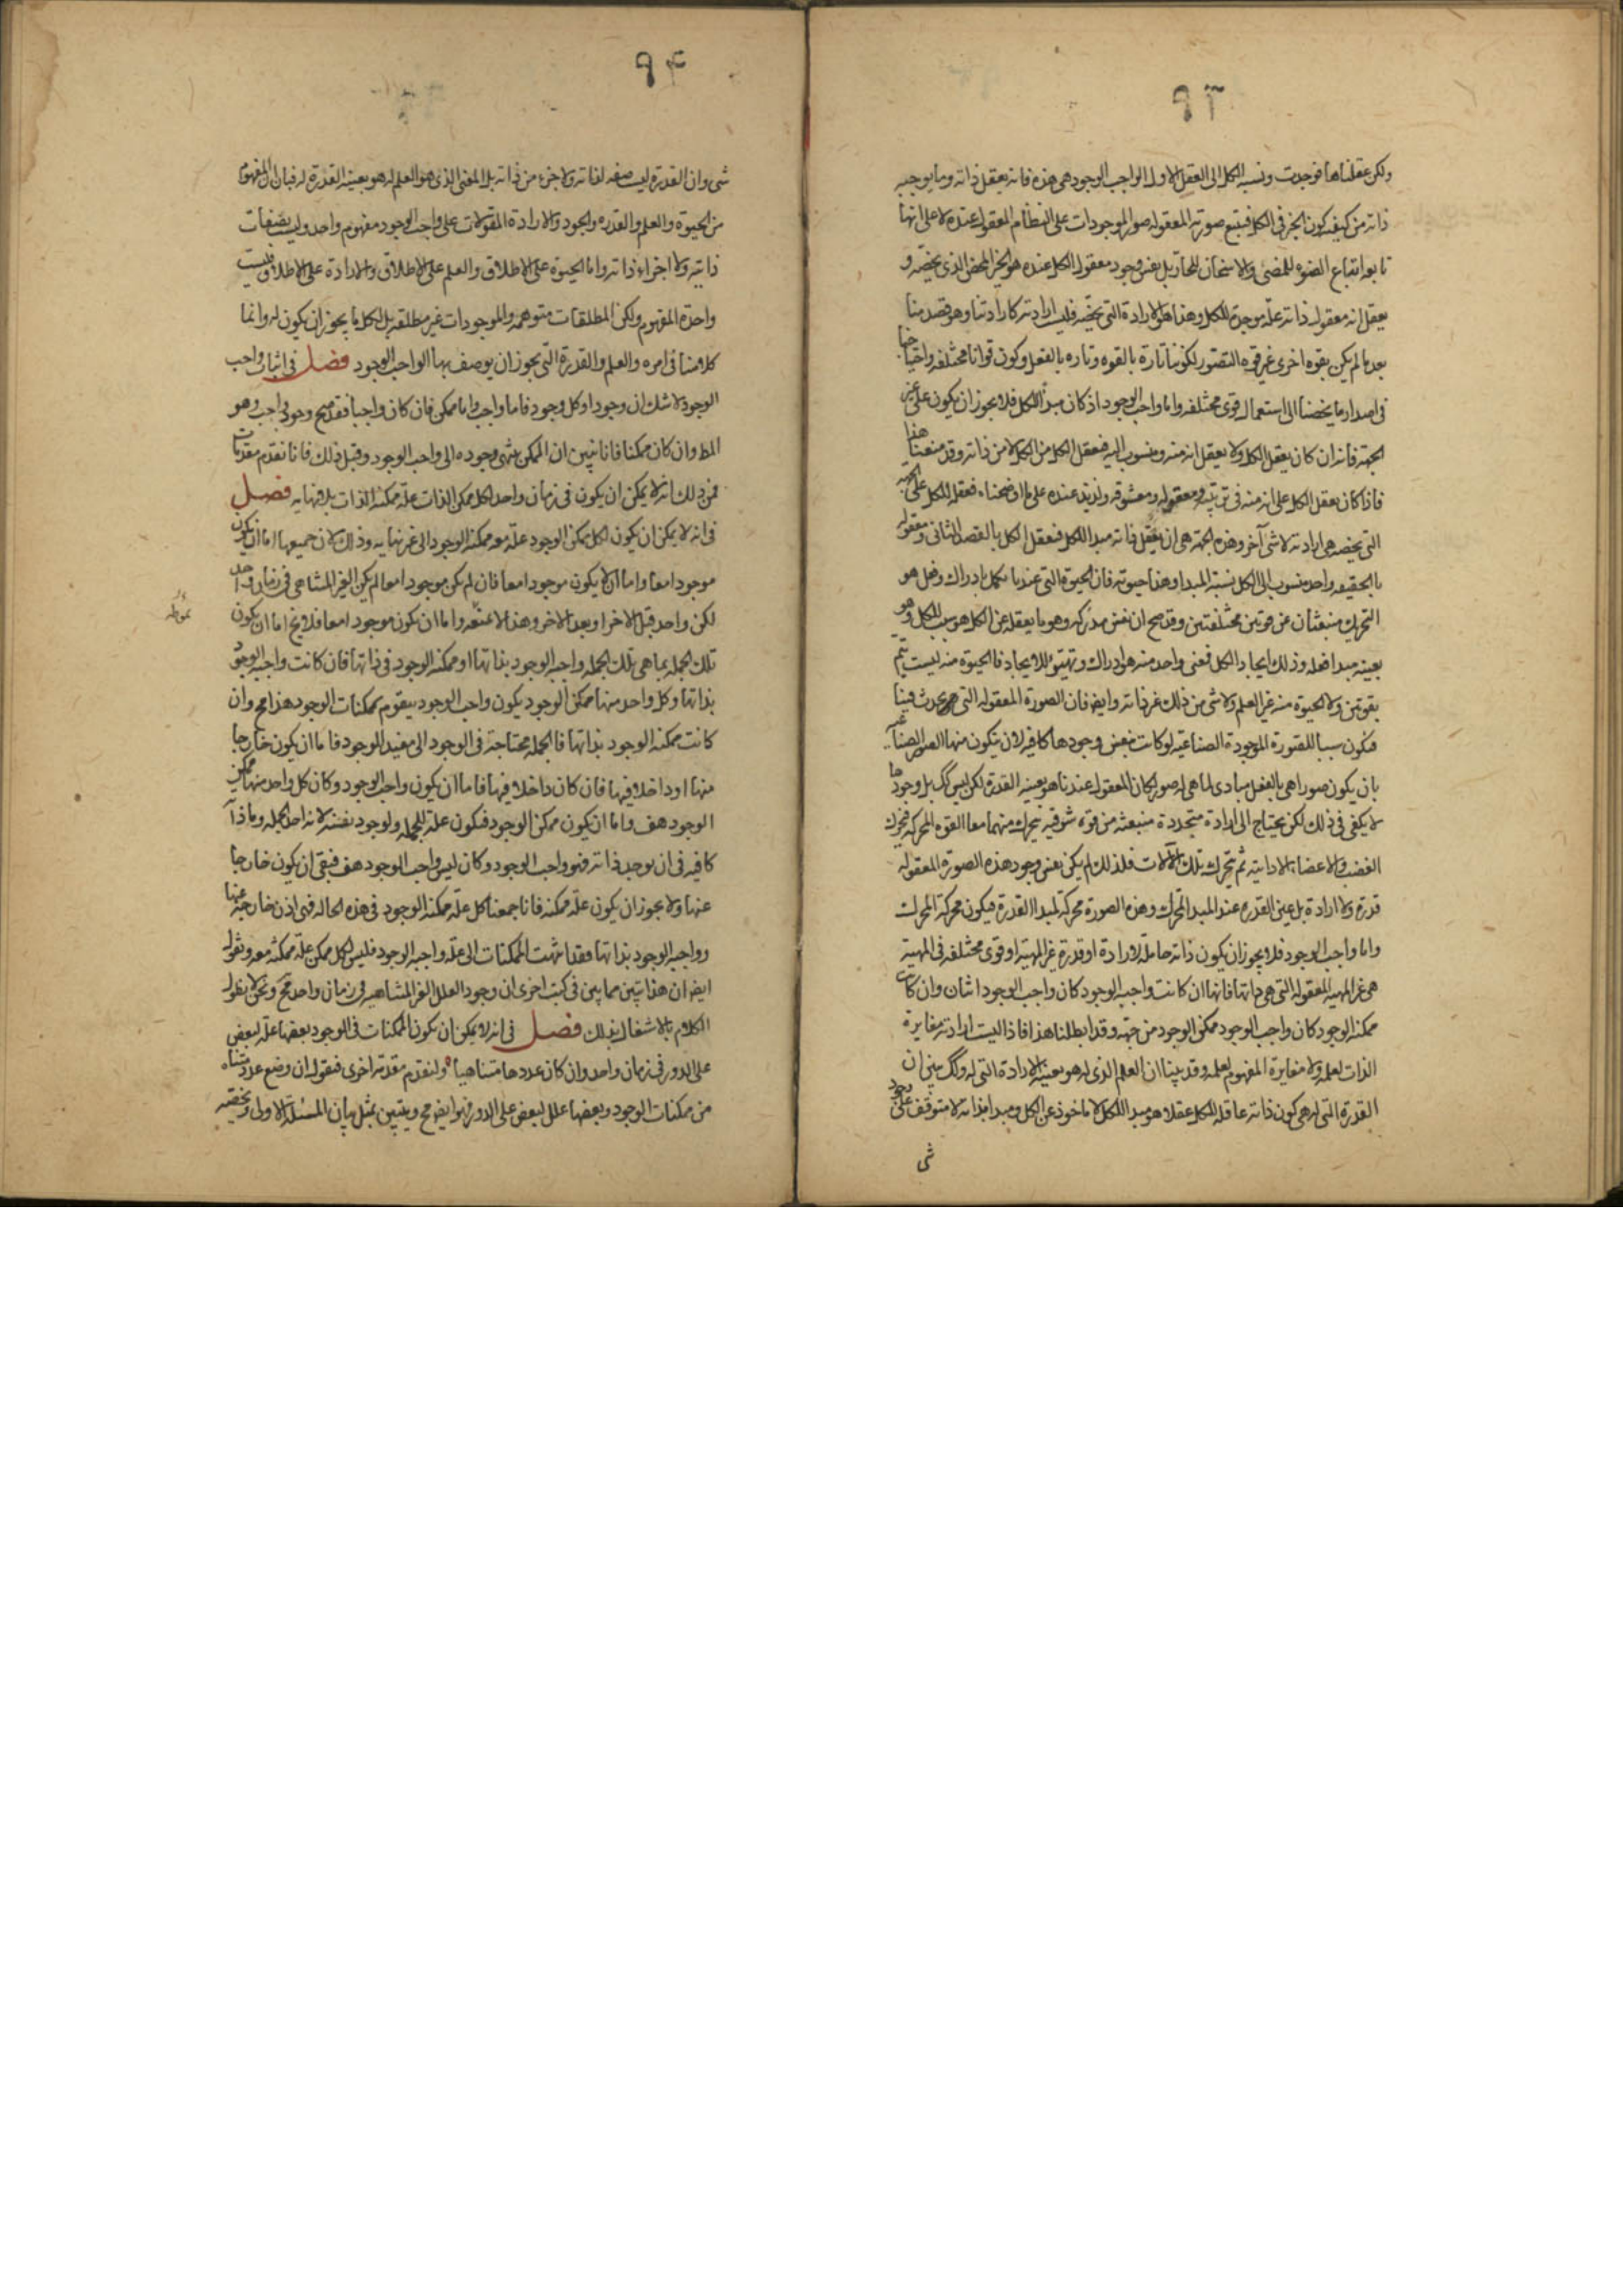 ٩٣
ولكن عقلناها فوجدت ونسبة الكل الى العقل الاول الواجب الوجود هى هذه فانه يعقل ذاته وما يوجبه
ذاته من كيفيه كون الخير فى الكل فيتبع صورته المعقوله صور الموجودات على النظام المعقول عنده لا على انها
تابعه اتباع الضوء للمضئ والاسخان للحار بل نفس وجود معقول الكل عنده هو الخير المحض الذى يخصه و
يعقل انه معقول ذاته علة موجدة للكل وهذا هو الارادة التى تخصه فليس ارادته كارادتنا وهو قصد منا
بعد ما لم يكن بقوه اخرى غير قوه التصور لكوننا تارة بالقوه وتاره بالفعل وكون قوانا مختلفه واحتياجنا
فى اصدار ما يخصنا الى استعمال قوى مختلفه واما واجب الوجود اذ كان مبدأ للكل فلا يجوز ان يكون على غير هذا
الجهة فانه ان كان يعقل الكل ولا يعقل انه منه ومنسوب اليه فعقل الكل من الكل لا من ذاته وقد منعنا
فاذا كان يعقل الكل على انه منه فى ترتيبه ومعقوله ومعشوقه ولذيذ عنده على ما اوضحناه فعقله للكل على الجهة
التى تخصه هى ارادته لا شئ آخر وهذه الجهة هى ان يعقل ذاته مبدا للكل فيعقل الكل بالقصد الثانى ومعقوله
بالحقيقه واحد منسوب الى الكل نسبة المبدا وهذا حيوته فان الحيوة التى عندنا تكمل بادراك وفعل هو
التحريك منبعثان عن قوتين مختلفتين وقد صح ان نفس مدركه وهو ما يعقله عن الكل هو سبب الكل وهو
بعينه مبدا فعله وذلك ايجاد الكل فمعنى واحد منه هو ادراك وتهيئو للايجاد فالحيوة منه ليست تتم
بقوتين ولا الحيوة منه غير العلم ولا شئ من ذلك غير ذاته وايضا فان الصورة المعقوله التى تحدث فينا
فتكون سببا للصورة الموجودة الصناعية لو كانت بنفس وجودها كافيه لان يتكون منها الصور الصناعيه
بان يكون صورا هى بالفعل مبادى لما هى له صور لكان المعقول عندنا هو بعينه القدرة لكن ليس كك بل وجودها
لا يكفى فى ذلك لكن يحتاج الى ارادة متجددة منبعثه من قوه شوقيه يتحرك منهما معا القوه المحركه فتحرك
العصب والاعضاء الادايية ثم تتحرك تلك الالات فلذلك لم يكن نفس وجود هذه الصورة المعقوله
قدره ولا ارادة بل عسى القدره عند المبدا المحرك وهذه الصورة محركة لمبدا القدرة فيكون محركة المحرك
واما واجب الوجود فلا يجوز ان يكون ذاته حاملة لارادة او قدرة غير المهية او قوى مختلفه فى المهية
هى غير المهيه المعقوله التى هى ذاتها فانها ان كانت واجبه الوجود كان واجب الوجود اثنان وان كانت
ممكنه الوجود كان واجب الوجود ممكن الوجود من جهه وقد ابطلنا هذا فاذا ليست ارادته مغايرة
الذات لعلمه ولا مغايرة المفهوم لعلمه وقد بينا ان العلم الذى له هو بعينه الارادة التى له وكك يبين ان
القدرة التى له هى كون ذاته عاقله للكل عقلا هو مبدا للكل لا ماخوذ عن الكل ومبدا بذاته لا متوقف على وجود
شئ
٩٤
شئ وان القدره ليست صفه لذاته ولا جزء من ذاته بل المعنى الذى هو العلم له هو بعينه القدرة له فبان ان المفهوم
من الحيوة والعلم والقدره والجود والارادة المقولات على واجب الوجود مفهوم واحد وليست صفات
ذاتيه ولا اجزاء ذاته واما الحيوة على الاطلاق والعلم على الاطلاق والارادة على الاطلاق فليست
واحدة المفهوم ولكن المطلقات متوهمه والموجودات غير مطلقه بل لكل ما يجوز ان يكون له وانما
كلامنا فى امره والعلم والقدرة التى يجوز ان يوصف بها الواجب الوجود فصل فى اثبات واجب
الوجود لا شك ان وجودا وكل وجود فاما واجب واما ممكن فان كان واجبا فقد صح وجود واجب وهو
المط وان كان ممكنا فانا نبين ان الممكن ينتهى وجوده الى واجب الوجود وقبل ذلك فانا نقدم مقدمات
فمن ذلك انه لا يمكن ان يكون فى زمان واحد لكل ممكن الذات علة ممكنه الذات بلا نهايه فصل
فى انه لا يمكن ان يكون لكل ممكن الوجود علة معه ممكنه الوجود الى غير نهايه وذلك لان جميعها اما ان يكون
موجودا معا واما ان لا يكون موجودا معا فان لم يكن موجودا معا لم يكن الغير المتناهى فى زمان واحد
لكن واحد قبل الاخر او بعد الاخر وهذا لا نمنعه واما ان يكون موجودا معا فلا يخ اما ان يكون
تلك الجمله بما هى تلك الجمله واجبه الوجود بذاتها او ممكنه الوجود فى ذاتها فان كانت واجبه الوجود
بذاتها وكل واحد منها ممكن الوجود يكون واجب الوجود يتقوم بممكنات الوجود هذا مح وان
كانت ممكنه الوجود بذاتها فالجمله محتاجة فى الوجود الى مفيد للوجود فاما ان يكون خارجا
منها او داخلا فيها فان كان داخلا فيها فاما ان يكون واجب الوجود وكان كل واحد منها ممكن
الوجود هف واما ان يكون ممكن الوجود فيكون علة للجمله ولوجود نفسه لانه احد الجمله وما ذاته
كافيه فى ان يوجد ذاته فهو واجب الوجود وكان ليس واجب الوجود هف فبقى ان يكون خارجا
عنها ولا يجوز ان يكون علة ممكنه فانا جمعنا كل علة ممكنه الوجود فى هذه الحاله فهى اذن خارجه عنها
وواجبه الوجود بذاتها فقد انتهت الممكنات الى علة واجبه الوجود فليس لكل ممكن علة ممكنه معه ونقول
ايضا ان هذا يتبين مما بين فى كتب اخرى ان وجود العلل الغير المتناهيه فى زمان واحد مح ونحن لا نطول
الكلام بالاشتغال بذلك فصل فى انه لا يمكن ان يكون الممكنات فى الوجود بعضها علة لبعض
على الدور فى زمان واحد وان كان عددها متناهيا ولنقدم مقدمه اخرى فنقول ان وضع عدد متناه
من ممكنات الوجود وبعضها علل لبعض على الدور فهو ايضا مح ويتبين بمثل بيان المسئلة الاولى ويخصه